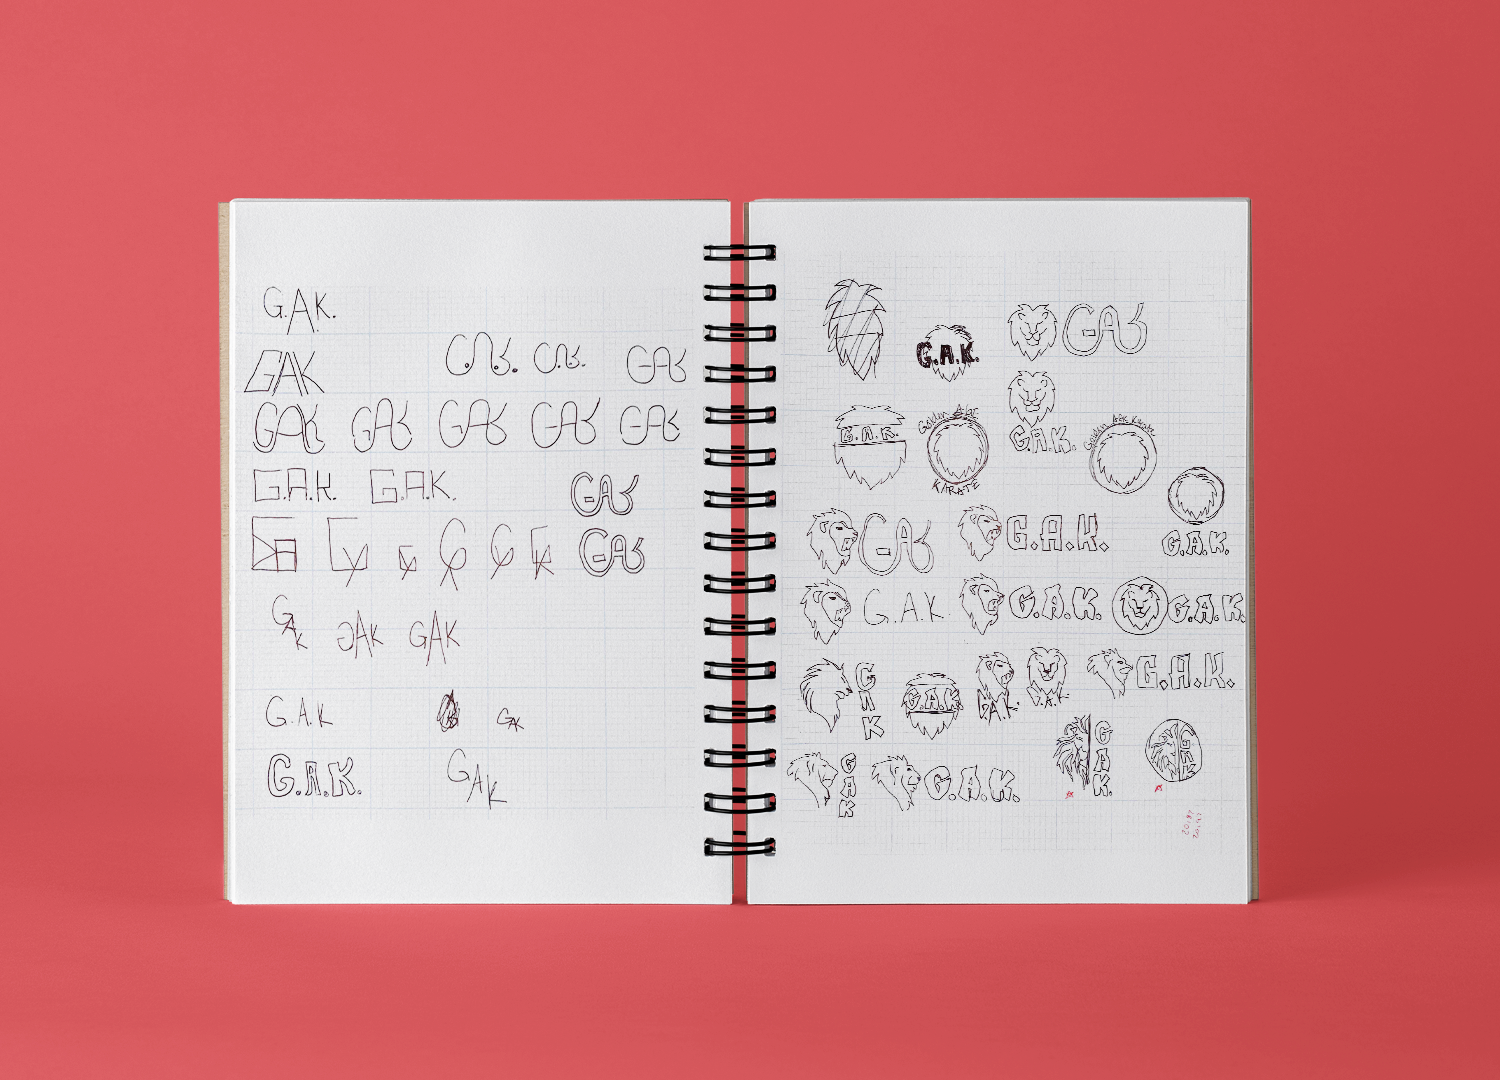 G.A.K.
GAK
G.A.K. G.A.K. GAK
GAK GAK GAK GAK GAK
G.A.K. G.A.K. GAK
GAK
GAK GAK GAK
G.A.K GAK
G.A.K. GAK
G.A.K. GAK
G.A.K.
G.A.K.
KARATE
GAK G.A.K. G.A.K.
G.A.K. G.A.K. G.A.K.
GAK G.A.K. GAK. G.A.K. G.A.K.
GAK G.A.K. GAK. GAK